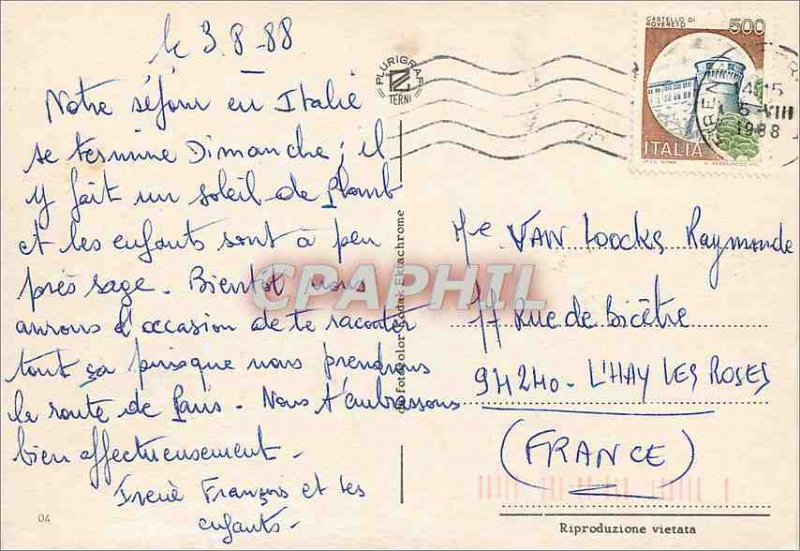 le 3.8-88
Notre séjour en Italie
se termine Dimanche ; il
y fait un soleil de Plomb
et les enfants sont à peu
près sage. Bientot nous
aurons l'occasion de te raconter
tout ça puisque nous prendrons
la route de Paris. Nous t'embrassons
bien affectueusement.
Irenè François et les
enfants.
04
PLURIGRAF
TERNI
fotocolor Kodak Ektachrome
CASTELLO DI
ROVERETO
500
ITALIA
5 VIII
1988
CPAPHIL
Me VAN LOOCKS Raymonde
17 Rue de Bicêtre
94240 - L'HAY LES ROSES
(FRANCE)
Riproduzione vietata